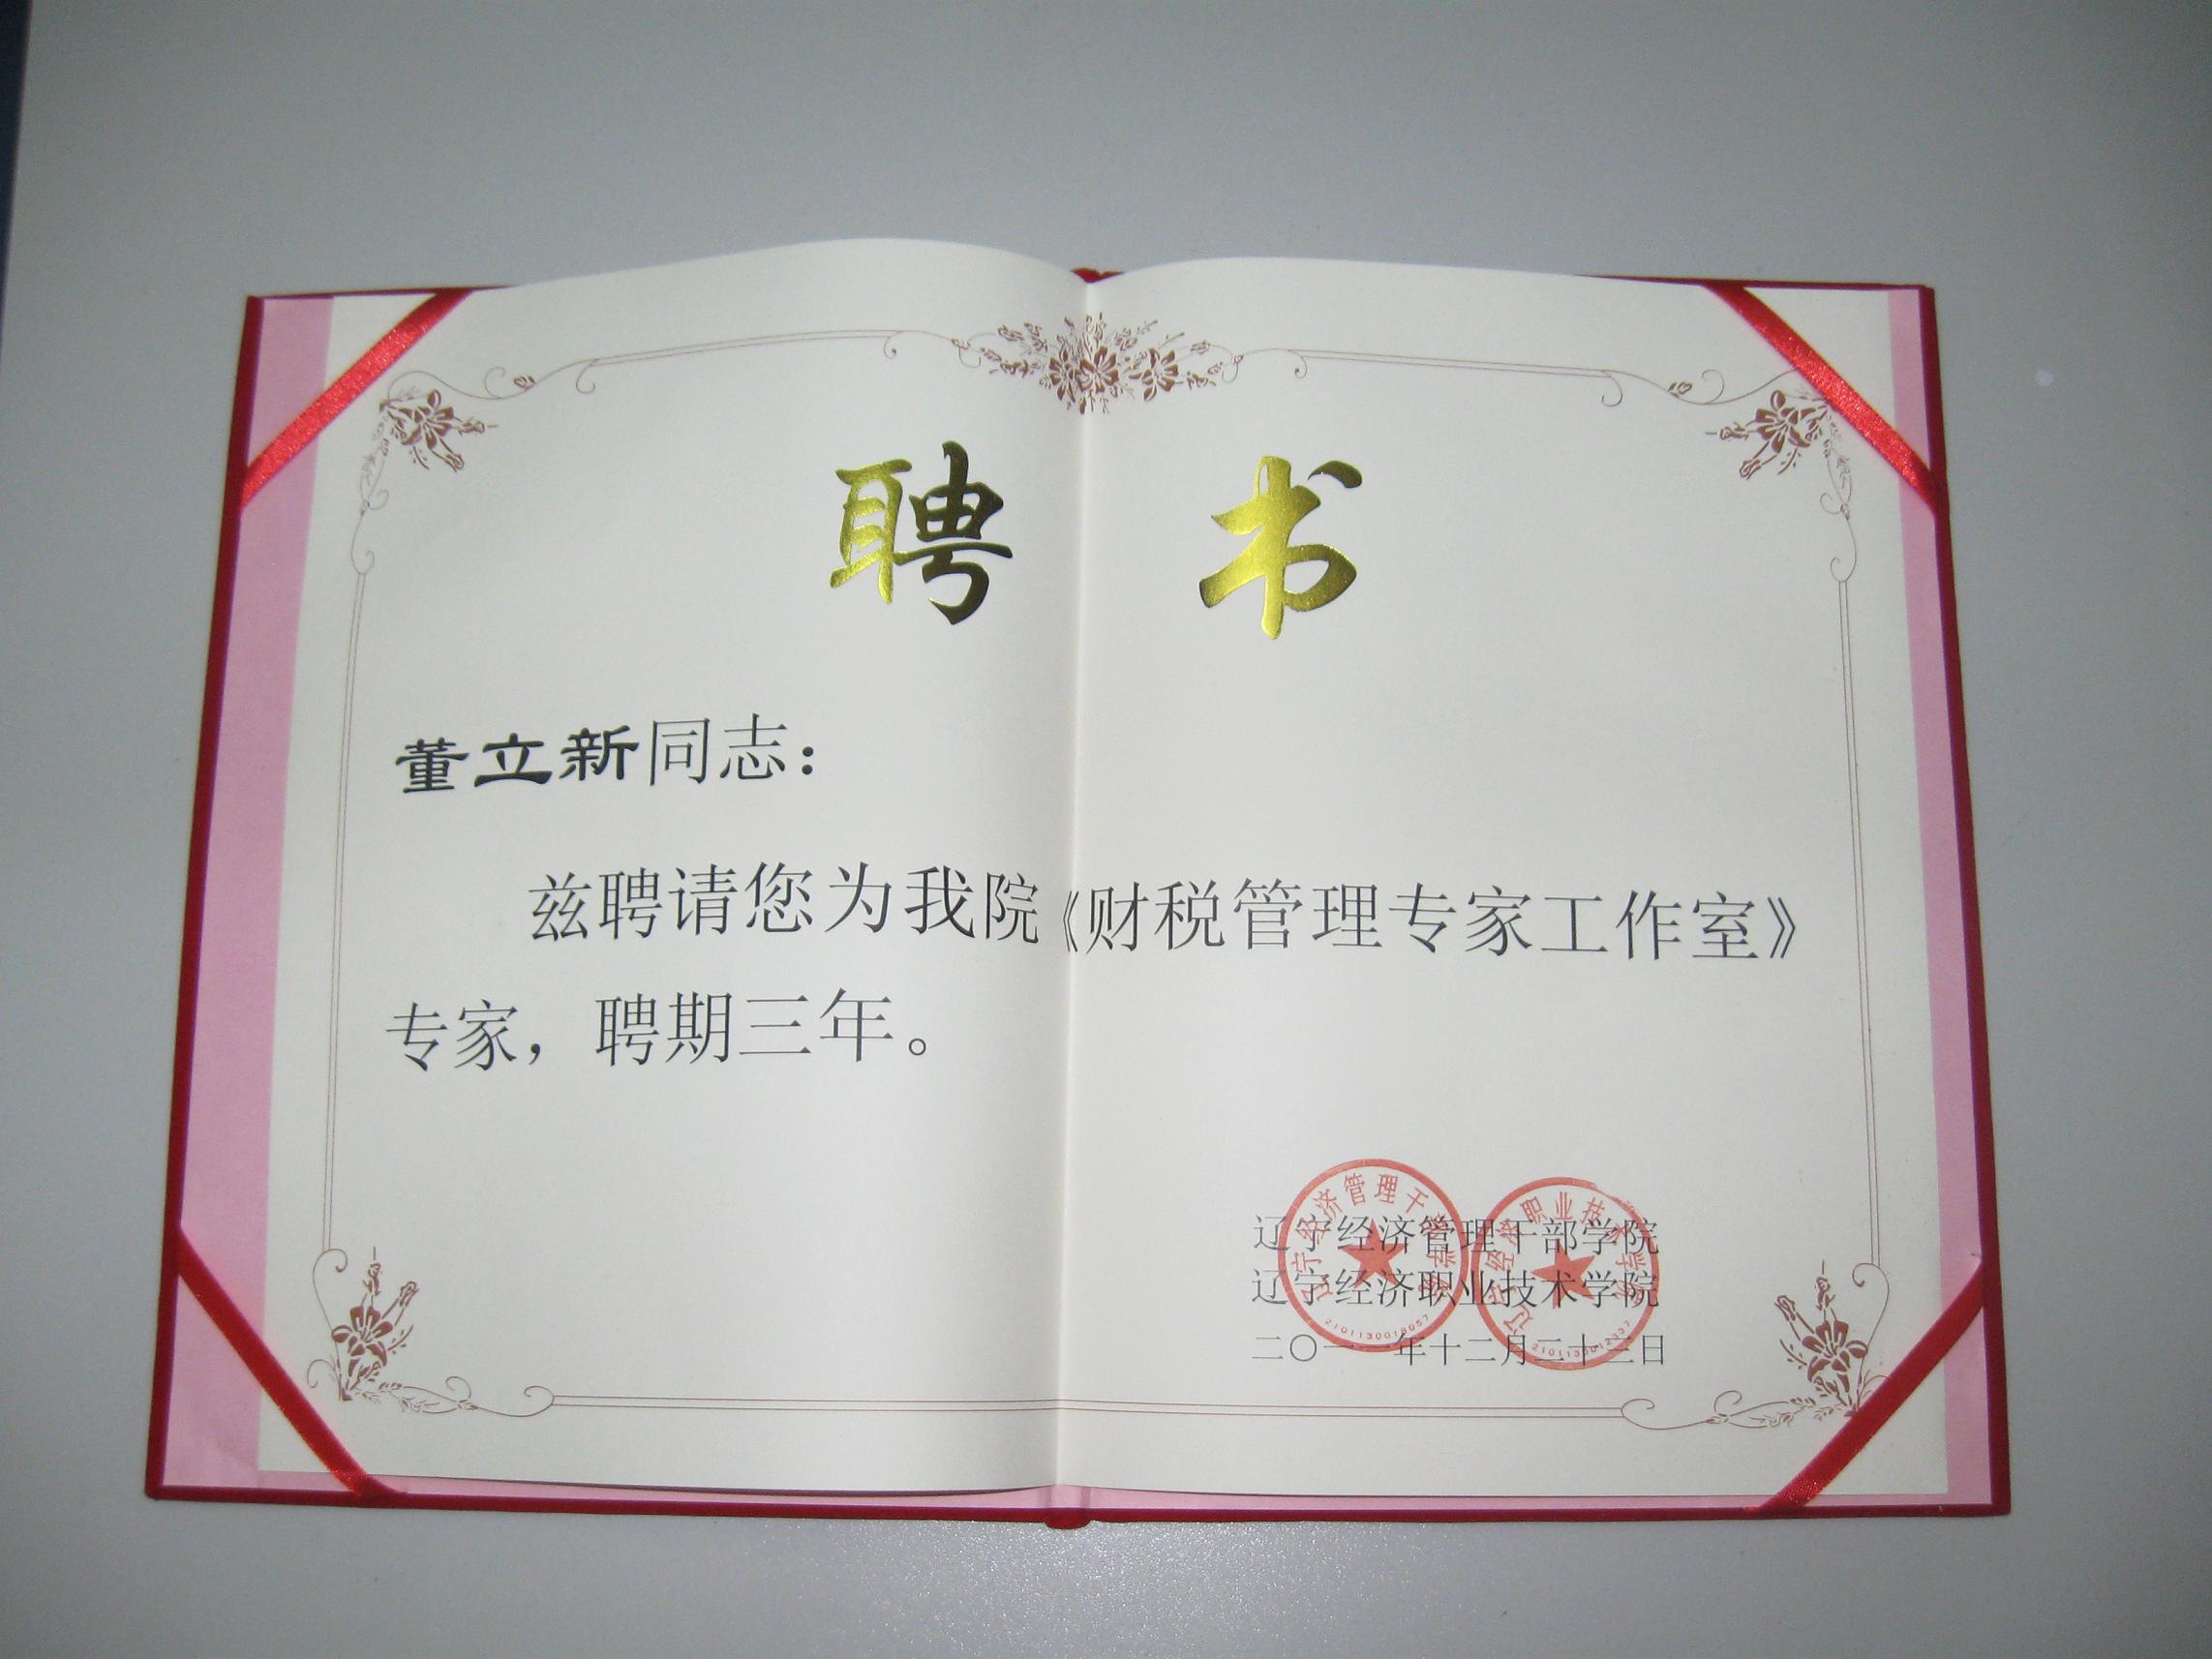 聘 书
董立新同志：
兹聘请您为我院《财税管理专家工作室》
专家，聘期三年。
辽宁经济管理干部学院
辽宁经济职业技术学院
二〇一一年十二月二十二日
辽宁经济管理干部学院
2101130018057
辽宁经济职业技术学院